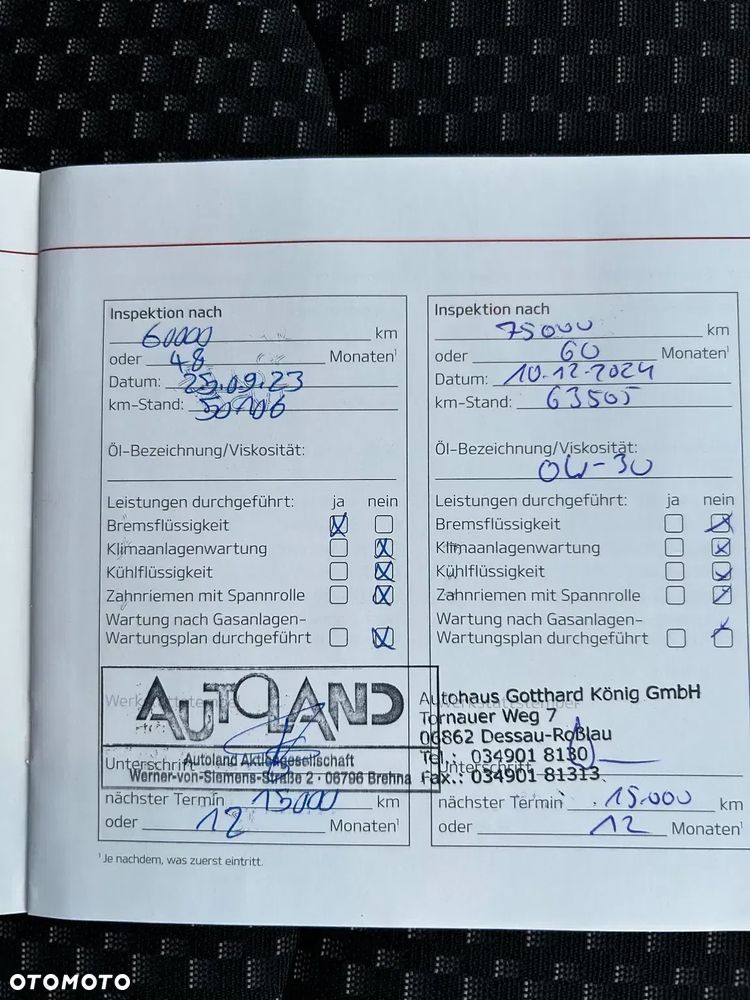 Inspektion nach
60000 km
oder 48 Monaten¹
Datum: 25.09.23
km-Stand: 50106
Öl-Bezeichnung/Viskosität:
Leistungen durchgeführt: ja nein
Bremsflüssigkeit
Klimaanlagenwartung
Kühlflüssigkeit
Zahnriemen mit Spannrolle
Wartung nach Gasanlagen-
Wartungsplan durchgeführt
AUTOLAND
Unterschrift
Autoland Aktiengesellschaft
Werner-von-Siemens-Straße 2 · 06796 Brehna
nächster Termin 15000 km
oder 12 Monaten¹
¹ Je nachdem, was zuerst eintritt.
Inspektion nach
75000 km
oder 60 Monaten¹
Datum: 10.12.2024
km-Stand: 63505
Öl-Bezeichnung/Viskosität:
0W-30
Leistungen durchgeführt: ja nein
Bremsflüssigkeit
Klimaanlagenwartung
Kühlflüssigkeit
Zahnriemen mit Spannrolle
Wartung nach Gasanlagen-
Wartungsplan durchgeführt
Autohaus Gotthard König GmbH
Werkstattstempel
Tornauer Weg 7
06862 Dessau-Roßlau
Tel.: 034901 8130
Unterschrift
Fax.: 034901 81313
nächster Termin 15.000 km
oder 12 Monaten¹
OTOMOTO